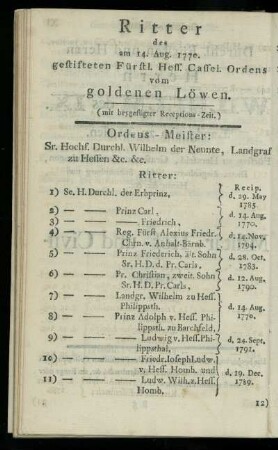 Ritter
des
am 14. Aug. 1770.
gestifteten Fürstl. Hess. Cassel. Ordens
vom
goldenen Löwen.
(mit beygefügter Receptions-Zeit.)
Ordens-Meister:
Sr. Hochf. Durchl. Wilhelm der Neunte, Landgraf
zu Hessen &c. &c.
Ritter:
Recip.
1) Se. H. Durchl. der Erbprinz, d. 29. May
1785.
2) — — Prinz Carl, d. 14. Aug.
3) — — — Friedrich, 1770.
4) — — Reg. Fürst Alexius Friedr. d. 14. Nov.
Chrn. v. Anhalt-Bärnb. 1794.
5) — — Prinz Friederich, ält. Sohn d. 28. Oct.
Sr. H. D. d. Pr. Carls, 1783.
6) — — Pr. Christian, zweit. Sohn d. 12. Aug.
Sr. H. D. Pr. Carls, 1790.
7) — — Landgr. Wilhelm zu Hess.
Philippsth. d. 14. Aug.
8) — — Prinz Adolph v. Hess. Phi- 1770.
lippsth. zu Barchfeld,
9) — — — Ludwig v. Hess. Phi- d. 24. Sept.
lippsthal, 1791.
10) — — — Friedr. Joseph Ludw.
v. Hess. Homb. und d. 29. Dec.
11) — — — Ludw. Wilh. z. Hess. 1789.
Homb.
12)